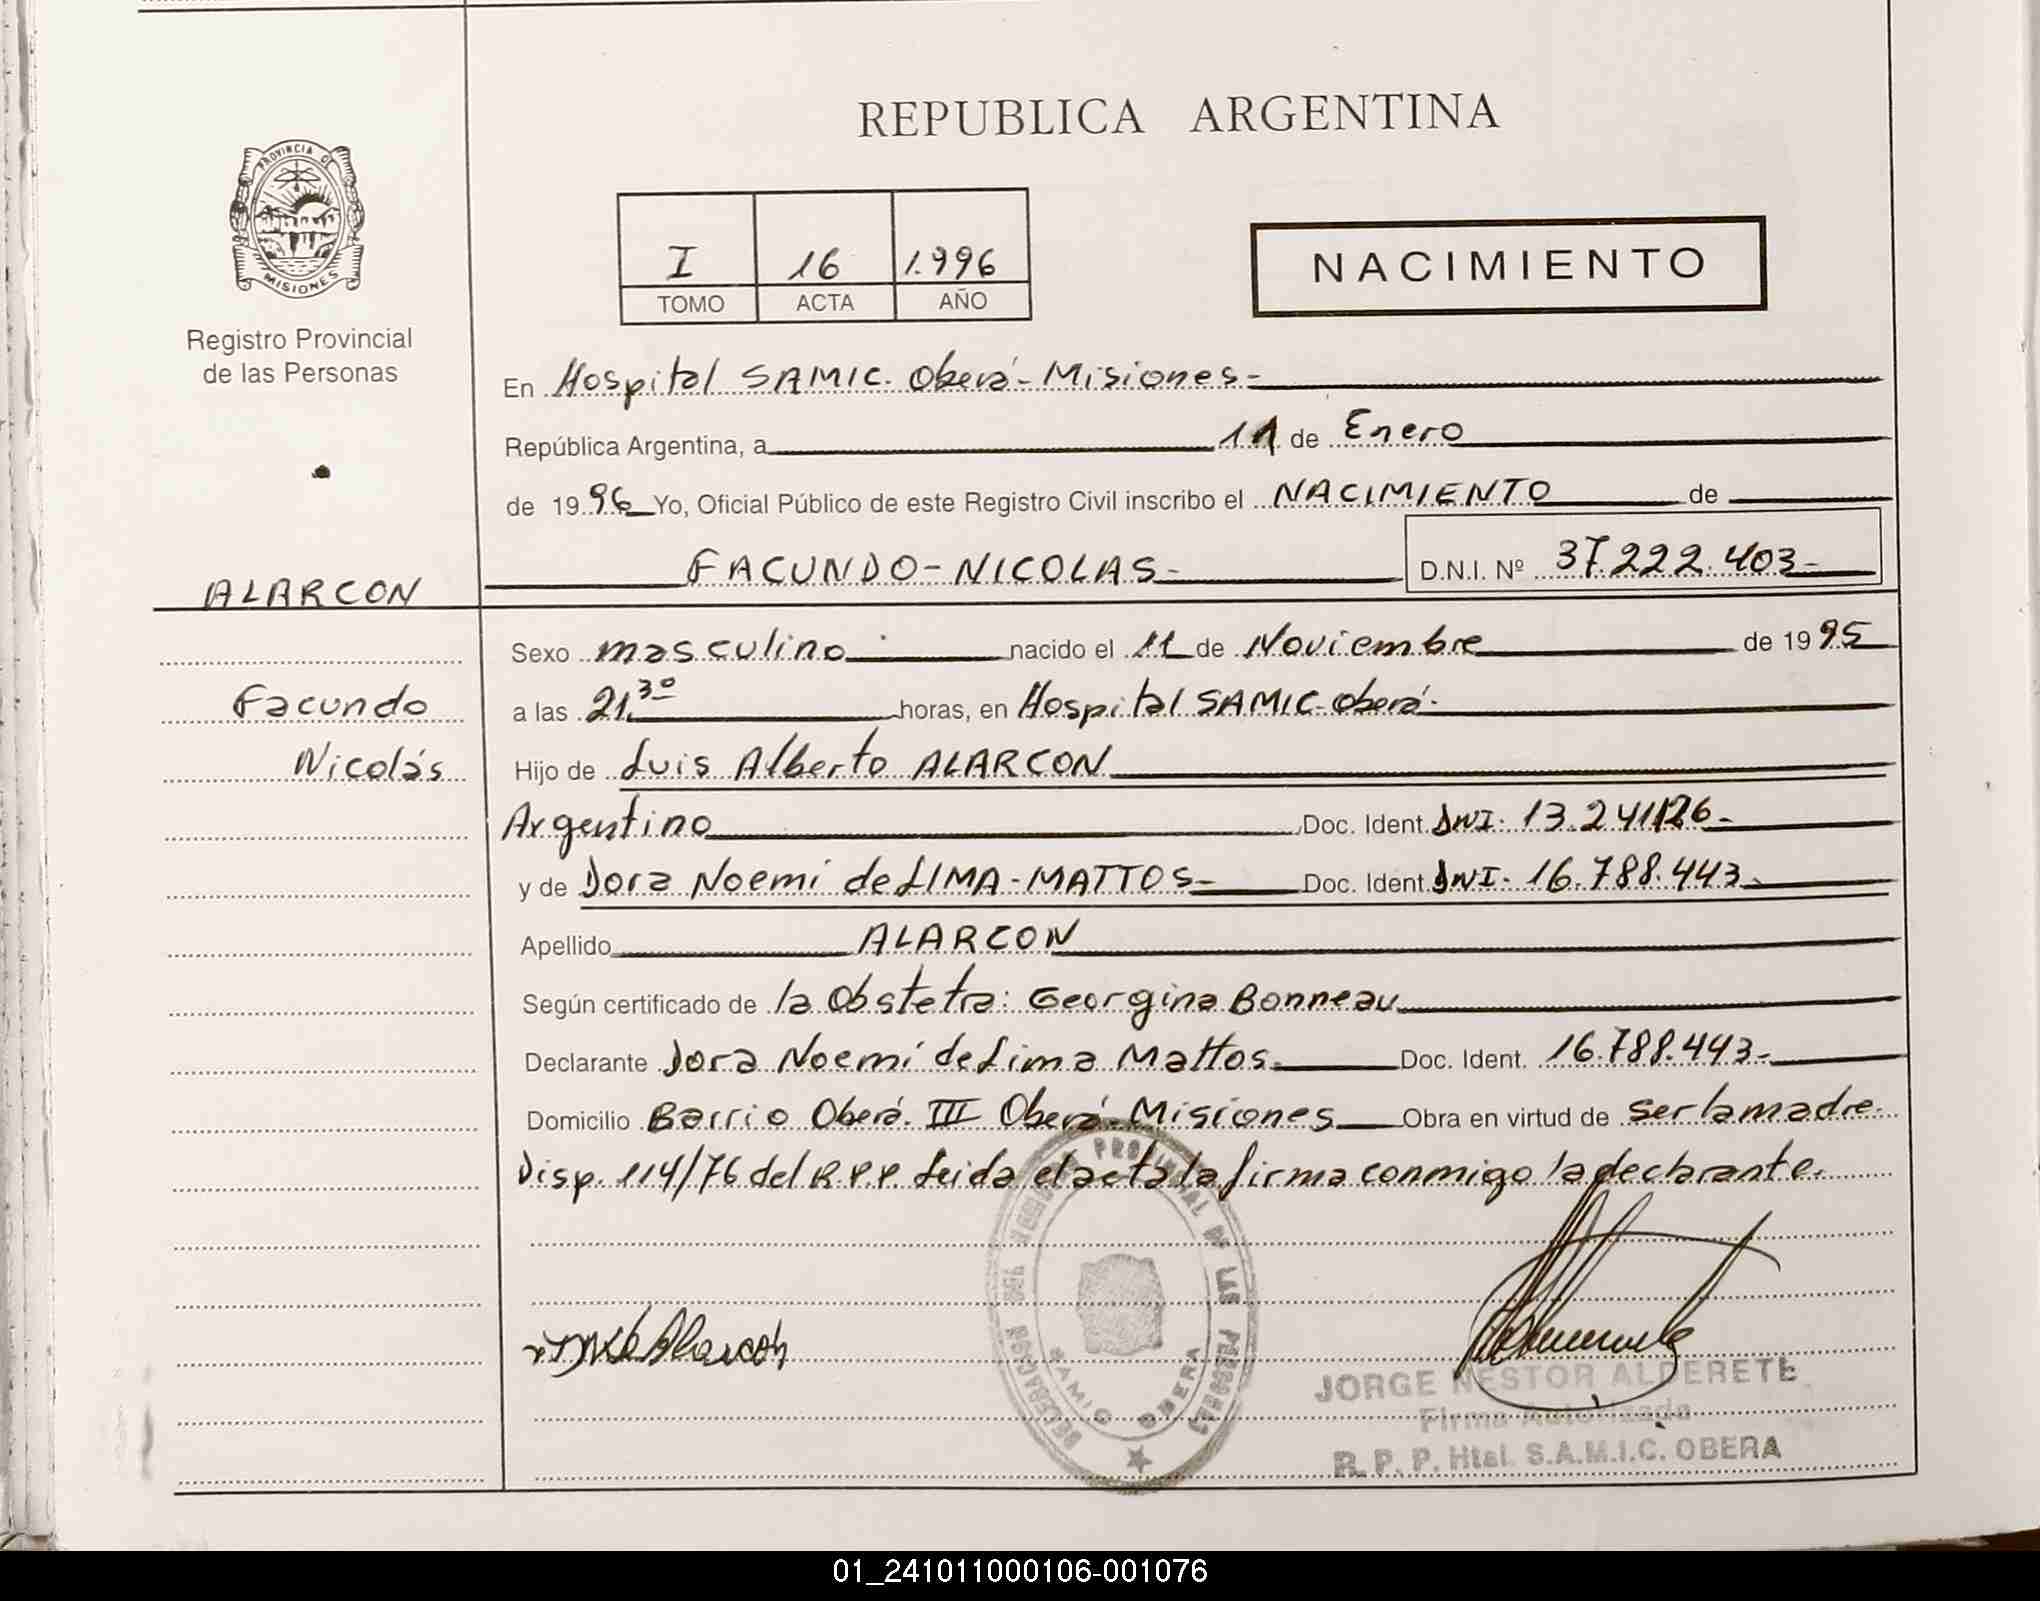 REPUBLICA ARGENTINA
PROVINCIA DE
MISIONES
Registro Provincial
de las Personas
I 16 1.996
TOMO ACTA AÑO
NACIMIENTO
En Hospital SAMIC. Oberá - Misiones -
República Argentina, a 11 de Enero
de 1996 Yo, Oficial Público de este Registro Civil inscribo el NACIMIENTO de
FACUNDO - NICOLAS - D.N.I. Nº 37.222.403 -
ALARCON
Facundo
Nicolás
Sexo masculino nacido el 11 de Noviembre de 1995
a las 21.30 horas, en Hospital SAMIC - Oberá -
Hijo de Luis Alberto ALARCON
Argentino Doc. Ident. DNI. 13.241126 -
y de Dora Noemí de LIMA - MATTOS - Doc. Ident. DNI. 16.788.443 -
Apellido ALARCON
Según certificado de la Obstetra: Georgina Bonneau
Declarante Dora Noemí de Lima Mattos Doc. Ident. 16.788.443 -
Domicilio Barrio Oberá III Oberá - Misiones Obra en virtud de ser la madre.
Disp. 114/76 del R.P.P Leida el acta la firma conmigo la declarante.
DELEGACION DEL REGISTRO PROVINCIAL DE LAS PERSONAS
SAMIC OBERA
Alarcon
JORGE NESTOR ALDERETE
Firma Autorizada
R. P. P. Htal. S.A.M.I.C. OBERA
01_241011000106-001076